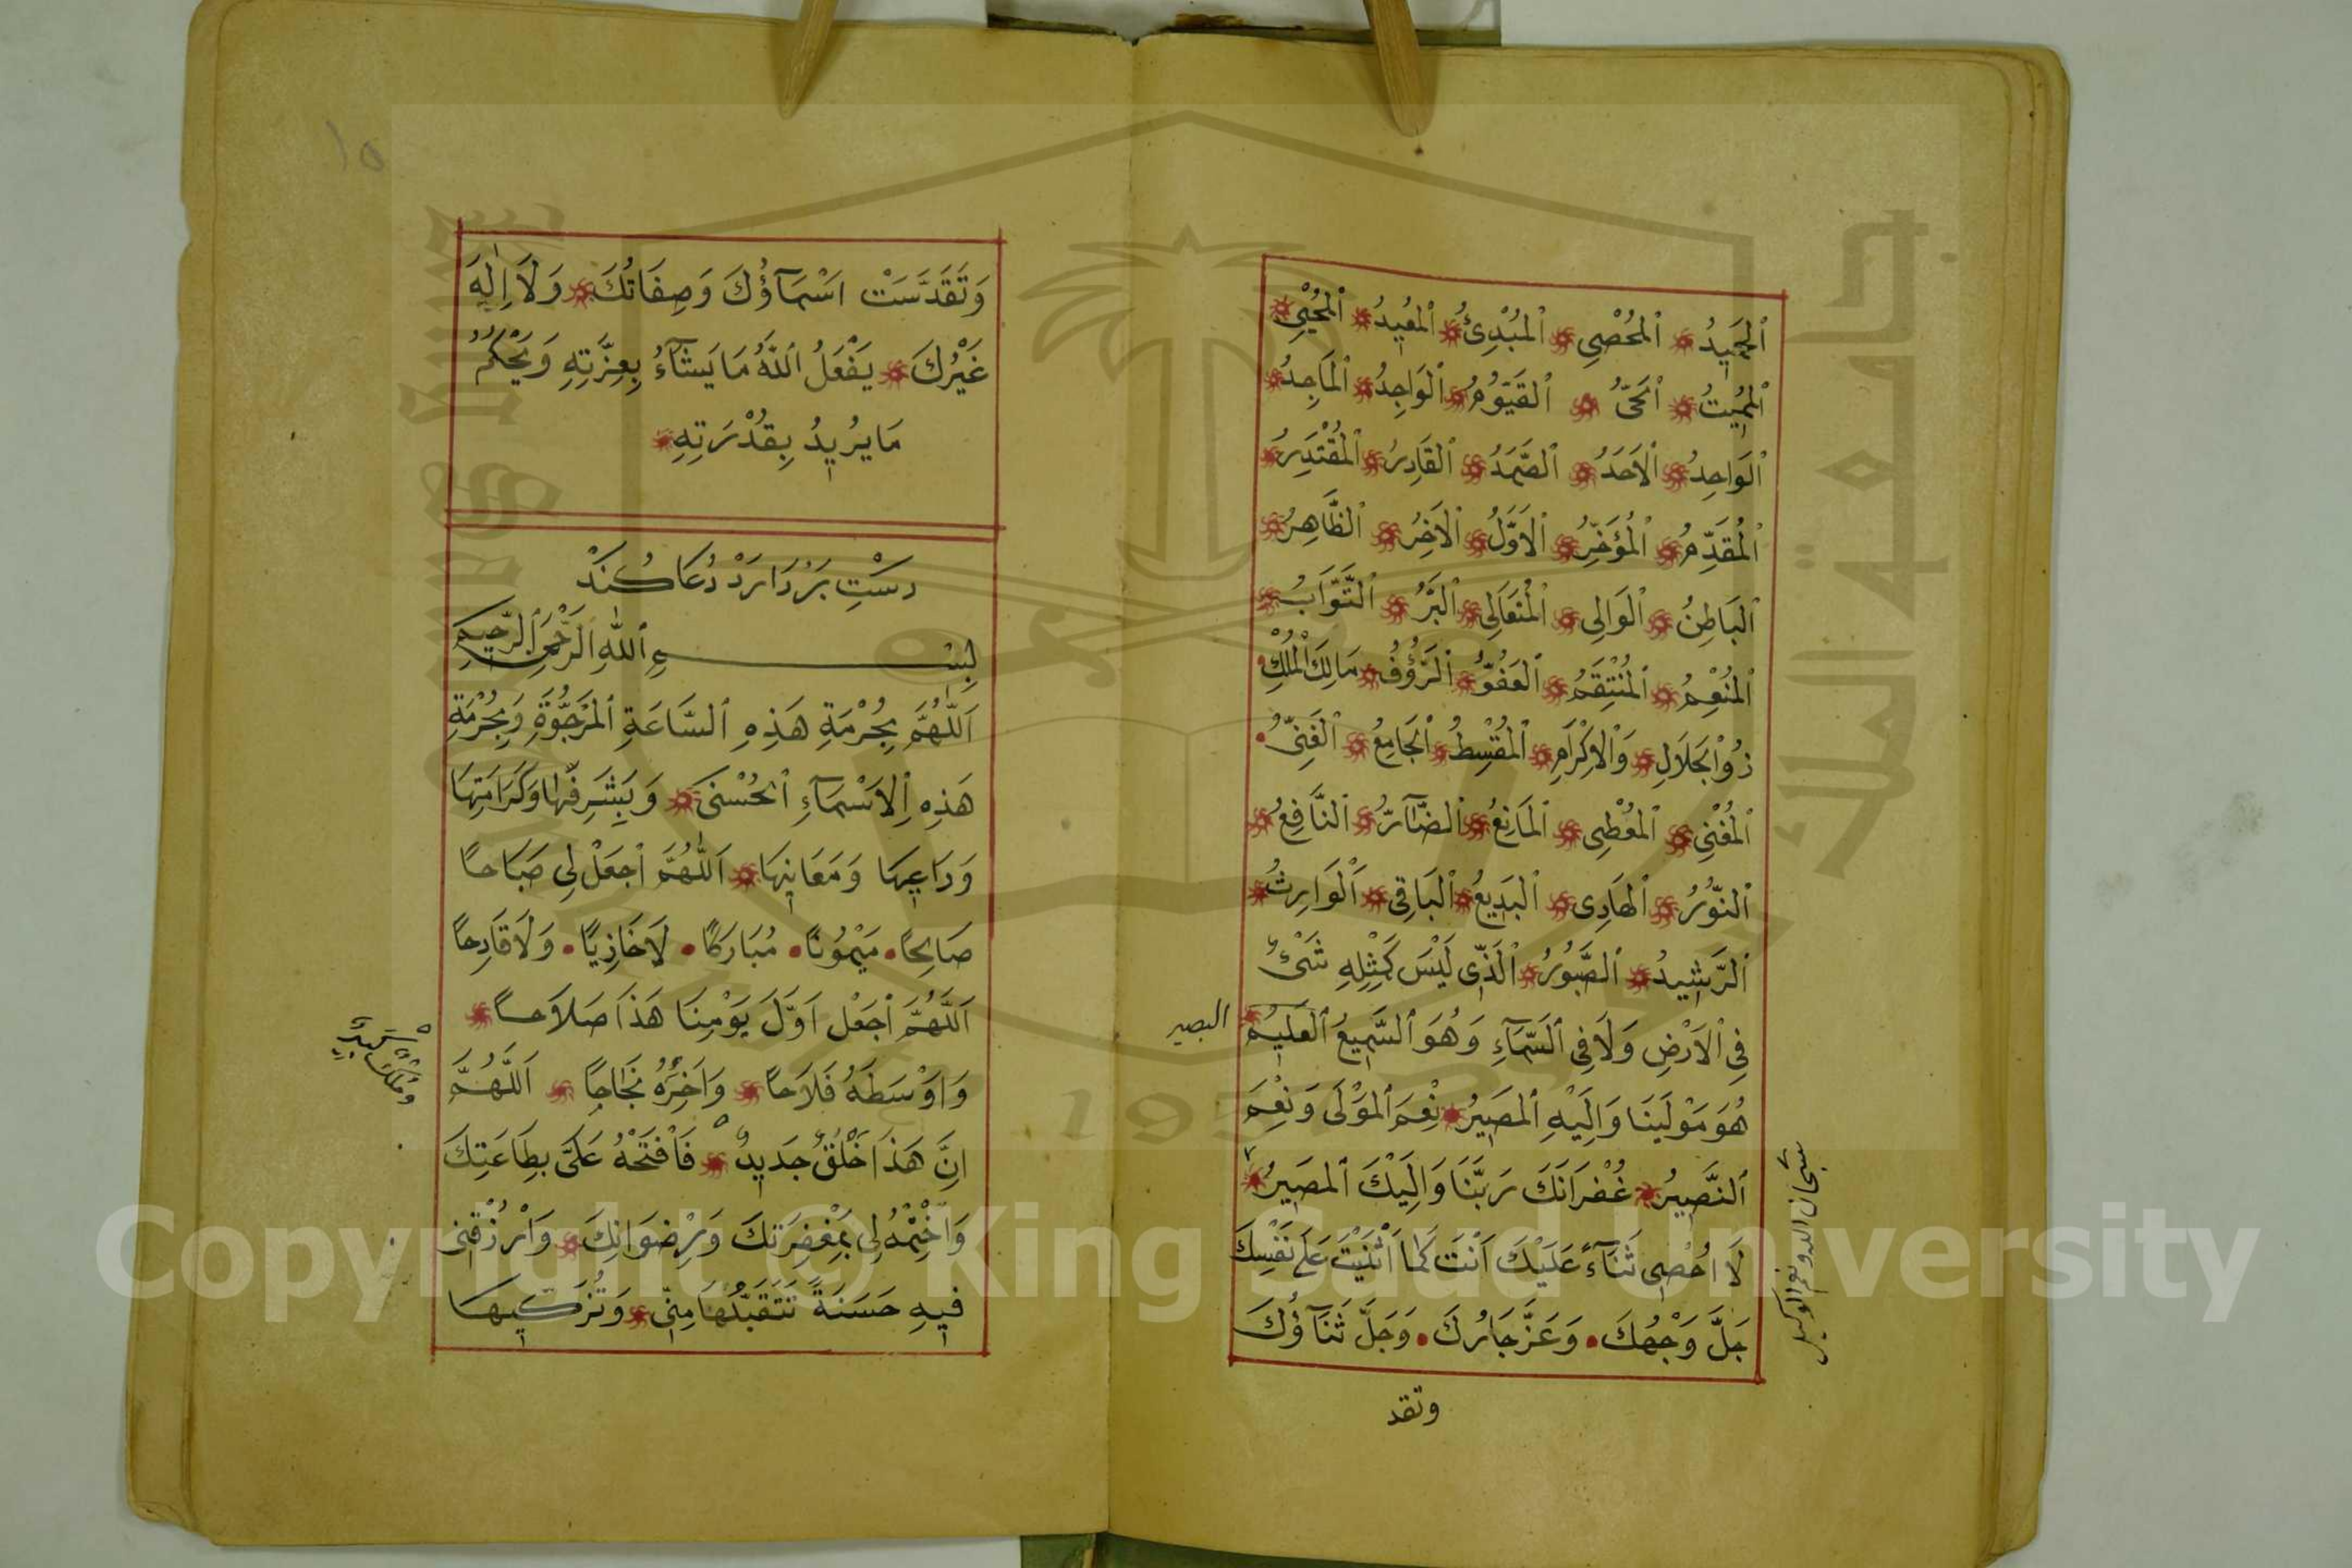 اَلْحَمِيدُ اَلْمُحْصِى اَلْمُبْدِئُ اَلْمُعِيدُ اَلْمُحْيِى
اَلْمُمِيتُ اَلْحَىُّ اَلْقَيُّومُ اَلْوَاجِدُ اَلْمَاجِدُ
اَلْوَاحِدُ اَلْاَحَدُ اَلصَّمَدُ اَلْقَادِرُ اَلْمُقْتَدِرُ
اَلْمُقَدِّمُ اَلْمُؤَخِّرُ اَلْاَوَّلُ اَلْاَخِرُ اَلظَّاهِرُ
اَلْبَاطِنُ اَلْوَالِى اَلْمُتَعَالِى اَلْبَرُّ اَلتَّوَّابُ
اَلْمُنْعِمُ اَلْمُنْتَقِمُ اَلْعَفُوُّ اَلرَّؤُفُ مَالِكَ الْمُلْكِ
ذُو الْجَلَالِ وَالْاِكْرَامِ اَلْمُقْسِطُ اَلْجَامِعُ اَلْغَنِىُّ
اَلْمُغْنِى اَلْمُعْطِى اَلْمَانِعُ اَلضَّآرُّ اَلنَّافِعُ
اَلنُّورُ اَلْهَادِى اَلْبَدِيعُ اَلْبَاقِى اَلْوَارِثُ
اَلرَّشِيدُ اَلصَّبُورُ اَلَّذِى لَيْسَ كَمِثْلِهِ شَىْءٌ
فِى الْاَرْضِ وَلَا فِى السَّمَآءِ وَهُوَ السَّمِيعُ الْعَلِيمُ
البصير
هُوَ مَوْلَينَا وَاِلَيْهِ الْمَصِيرُ نِعْمَ الْمَوْلَى وَنِعْمَ
النَّصِيرُ غُفْرَانَكَ رَبَّنَا وَاِلَيْكَ الْمَصِيرُ
لَا اُحْصِى ثَنَآءً عَلَيْكَ اَنْتَ كَمَا اَثْنَيْتَ عَلَى نَفْسِكَ
جَلَّ وَجْهُكَ وَعَزَّ جَارُكَ وَجَلَّ ثَنَآؤُكَ
سبحان الله ونعم الوكيل
وتقد
١٥
وَتَقَدَّسَتْ اَسْمَآؤُكَ وَصِفَاتُكَ وَلَا اِلٰهَ
غَيْرُكَ يَفْعَلُ اللّٰهُ مَا يَشَآءُ بِعِزَّتِهِ وَيَحْكُمُ
مَا يُرِيدُ بِقُدْرَتِهِ
دَسْتِ بَرْدَارَدْ دُعَا كُنَدْ
بِسْمِ اللّٰهِ الرَّحْمٰنِ الرَّحِيمِ
اَللّٰهُمَّ بِحُرْمَةِ هَذِهِ السَّاعَةِ الْمَرْجُوَّةِ وَبِحُرْمَةِ
هَذِهِ الْاَسْمَآءِ الْحُسْنَى وَبِشَرَفِهَا وَكَرَامَتِهَا
وَدَاعِيهَا وَمَعَانِيهَا اَللّٰهُمَّ اجْعَلْ لِى صَبَاحًا
صَالِحًا مَيْمُونًا مُبَارَكًا لَا خَازِيًا وَلَا قَادِحًا
اَللّٰهُمَّ اجْعَلْ اَوَّلَ يَوْمِنَا هَذَا صَلَاحًا
وَاَوْسَطَهُ فَلَاحًا وَاٰخِرَهُ نَجَاحًا اَللّٰهُمَّ
اِنَّ هَذَا خَلْقٌ جَدِيدٌ فَافْتَحْهُ عَلَىَّ بِطَاعَتِكَ
وَاخْتِمْهُ لِى بِمَغْفِرَتِكَ وَرِضْوَانِكَ وَارْزُقْنِى
فِيهِ حَسَنَةً تَتَقَبَّلُهَا مِنِّى وَتُزَكِّيهَا
جامعة الملك
1957
Copyright © King Saud University